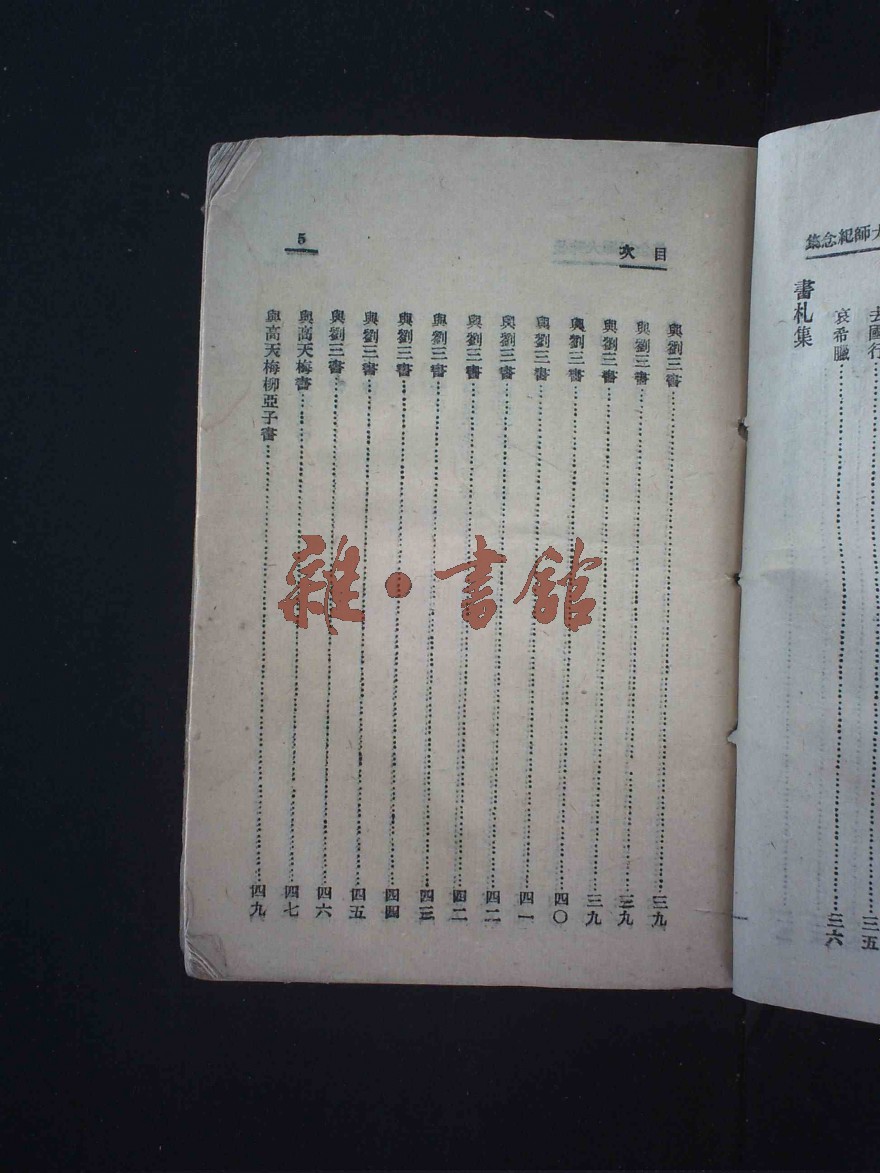 大師紀念集
去國行……三五
哀希臘……三六
書札集
目次
5
與劉三書……三九
與劉三書……三九
與劉三書……三九
與劉三書……四〇
與劉三書……四一
與劉三書……四二
與劉三書……四二
與劉三書……四三
與劉三書……四四
與劉三書……四五
與劉三書……四六
與高天梅書……四七
與高天梅柳亞子書……四九
雜·書館